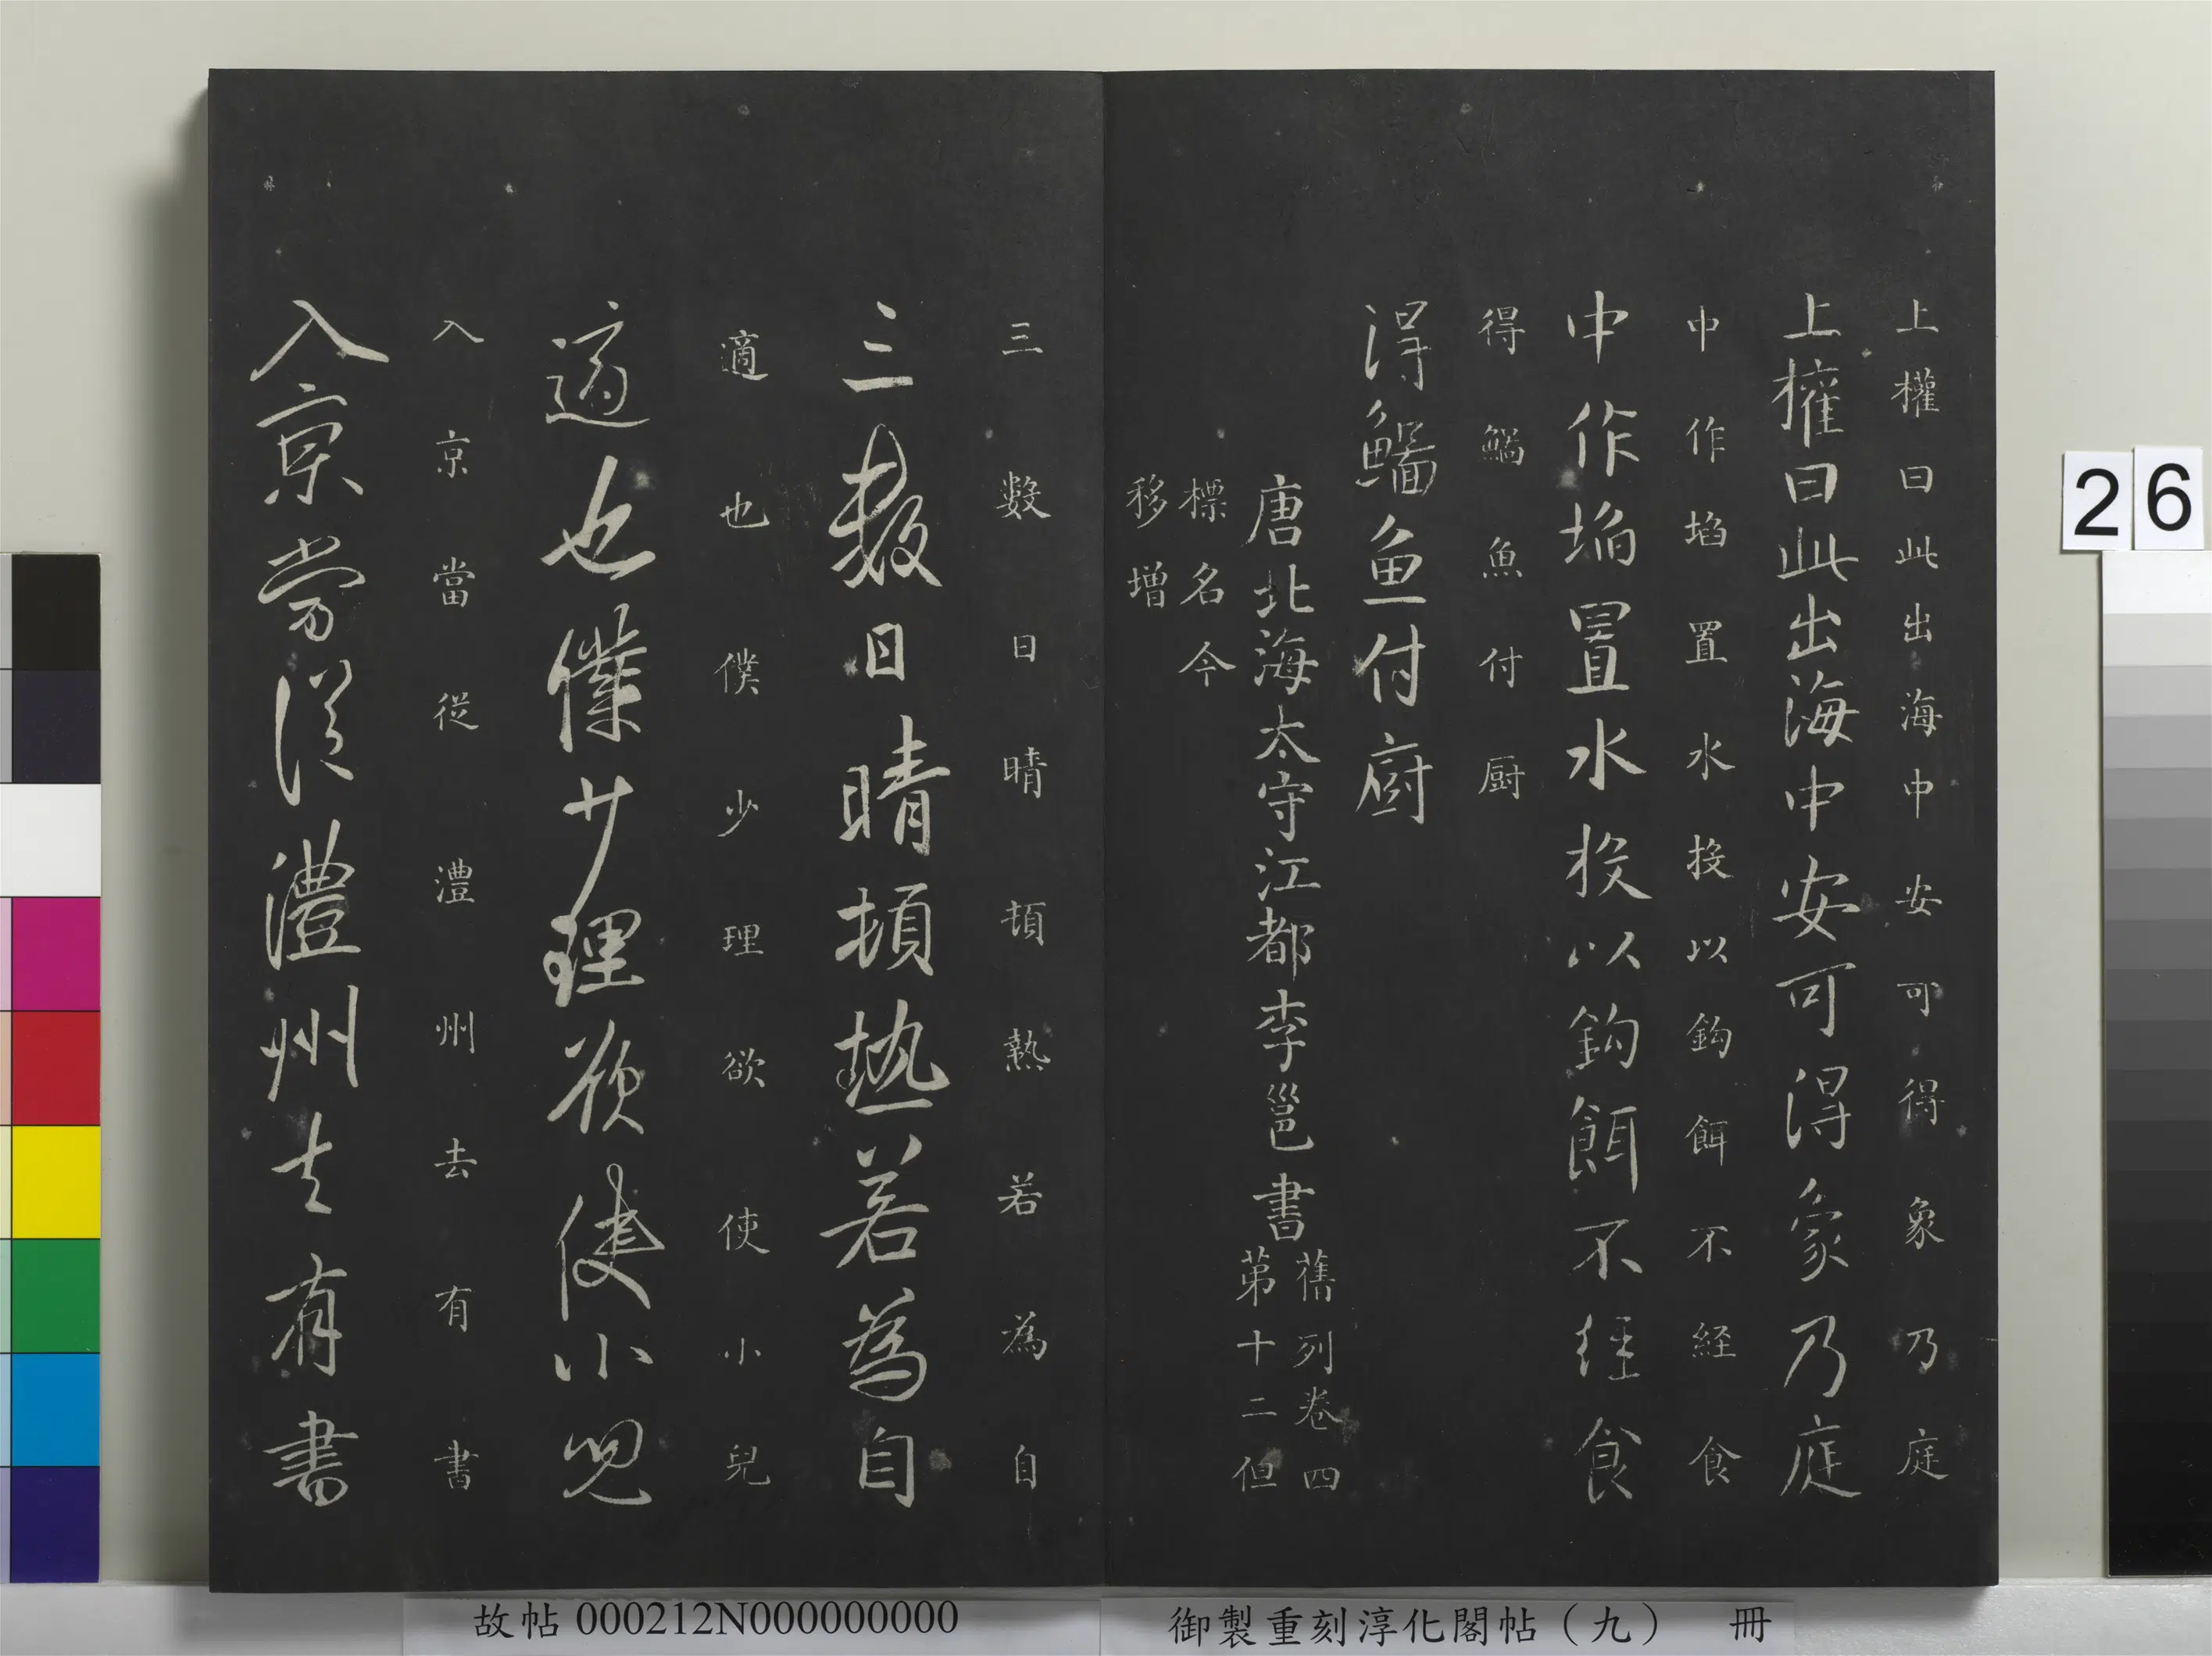 上權曰此出海中安可得象乃庭
上權曰此出海中安可得象乃庭
中作埳置水投以鈎餌不經食
中作埳置水投以鈎餌不經食
得鯔魚付厨
得鯔魚付厨
唐北海太守江都李邕書
舊列卷四
第十二但
標名今
移增
三數日晴頓熱若為自
三數日晴頓熱若為自
適也僕少理欲使小兒
適也僕少理欲使小兒
入京當從澧州去有書
入京當從澧州去有書
26
故帖 000212N000000000
御製重刻淳化閣帖（九） 冊